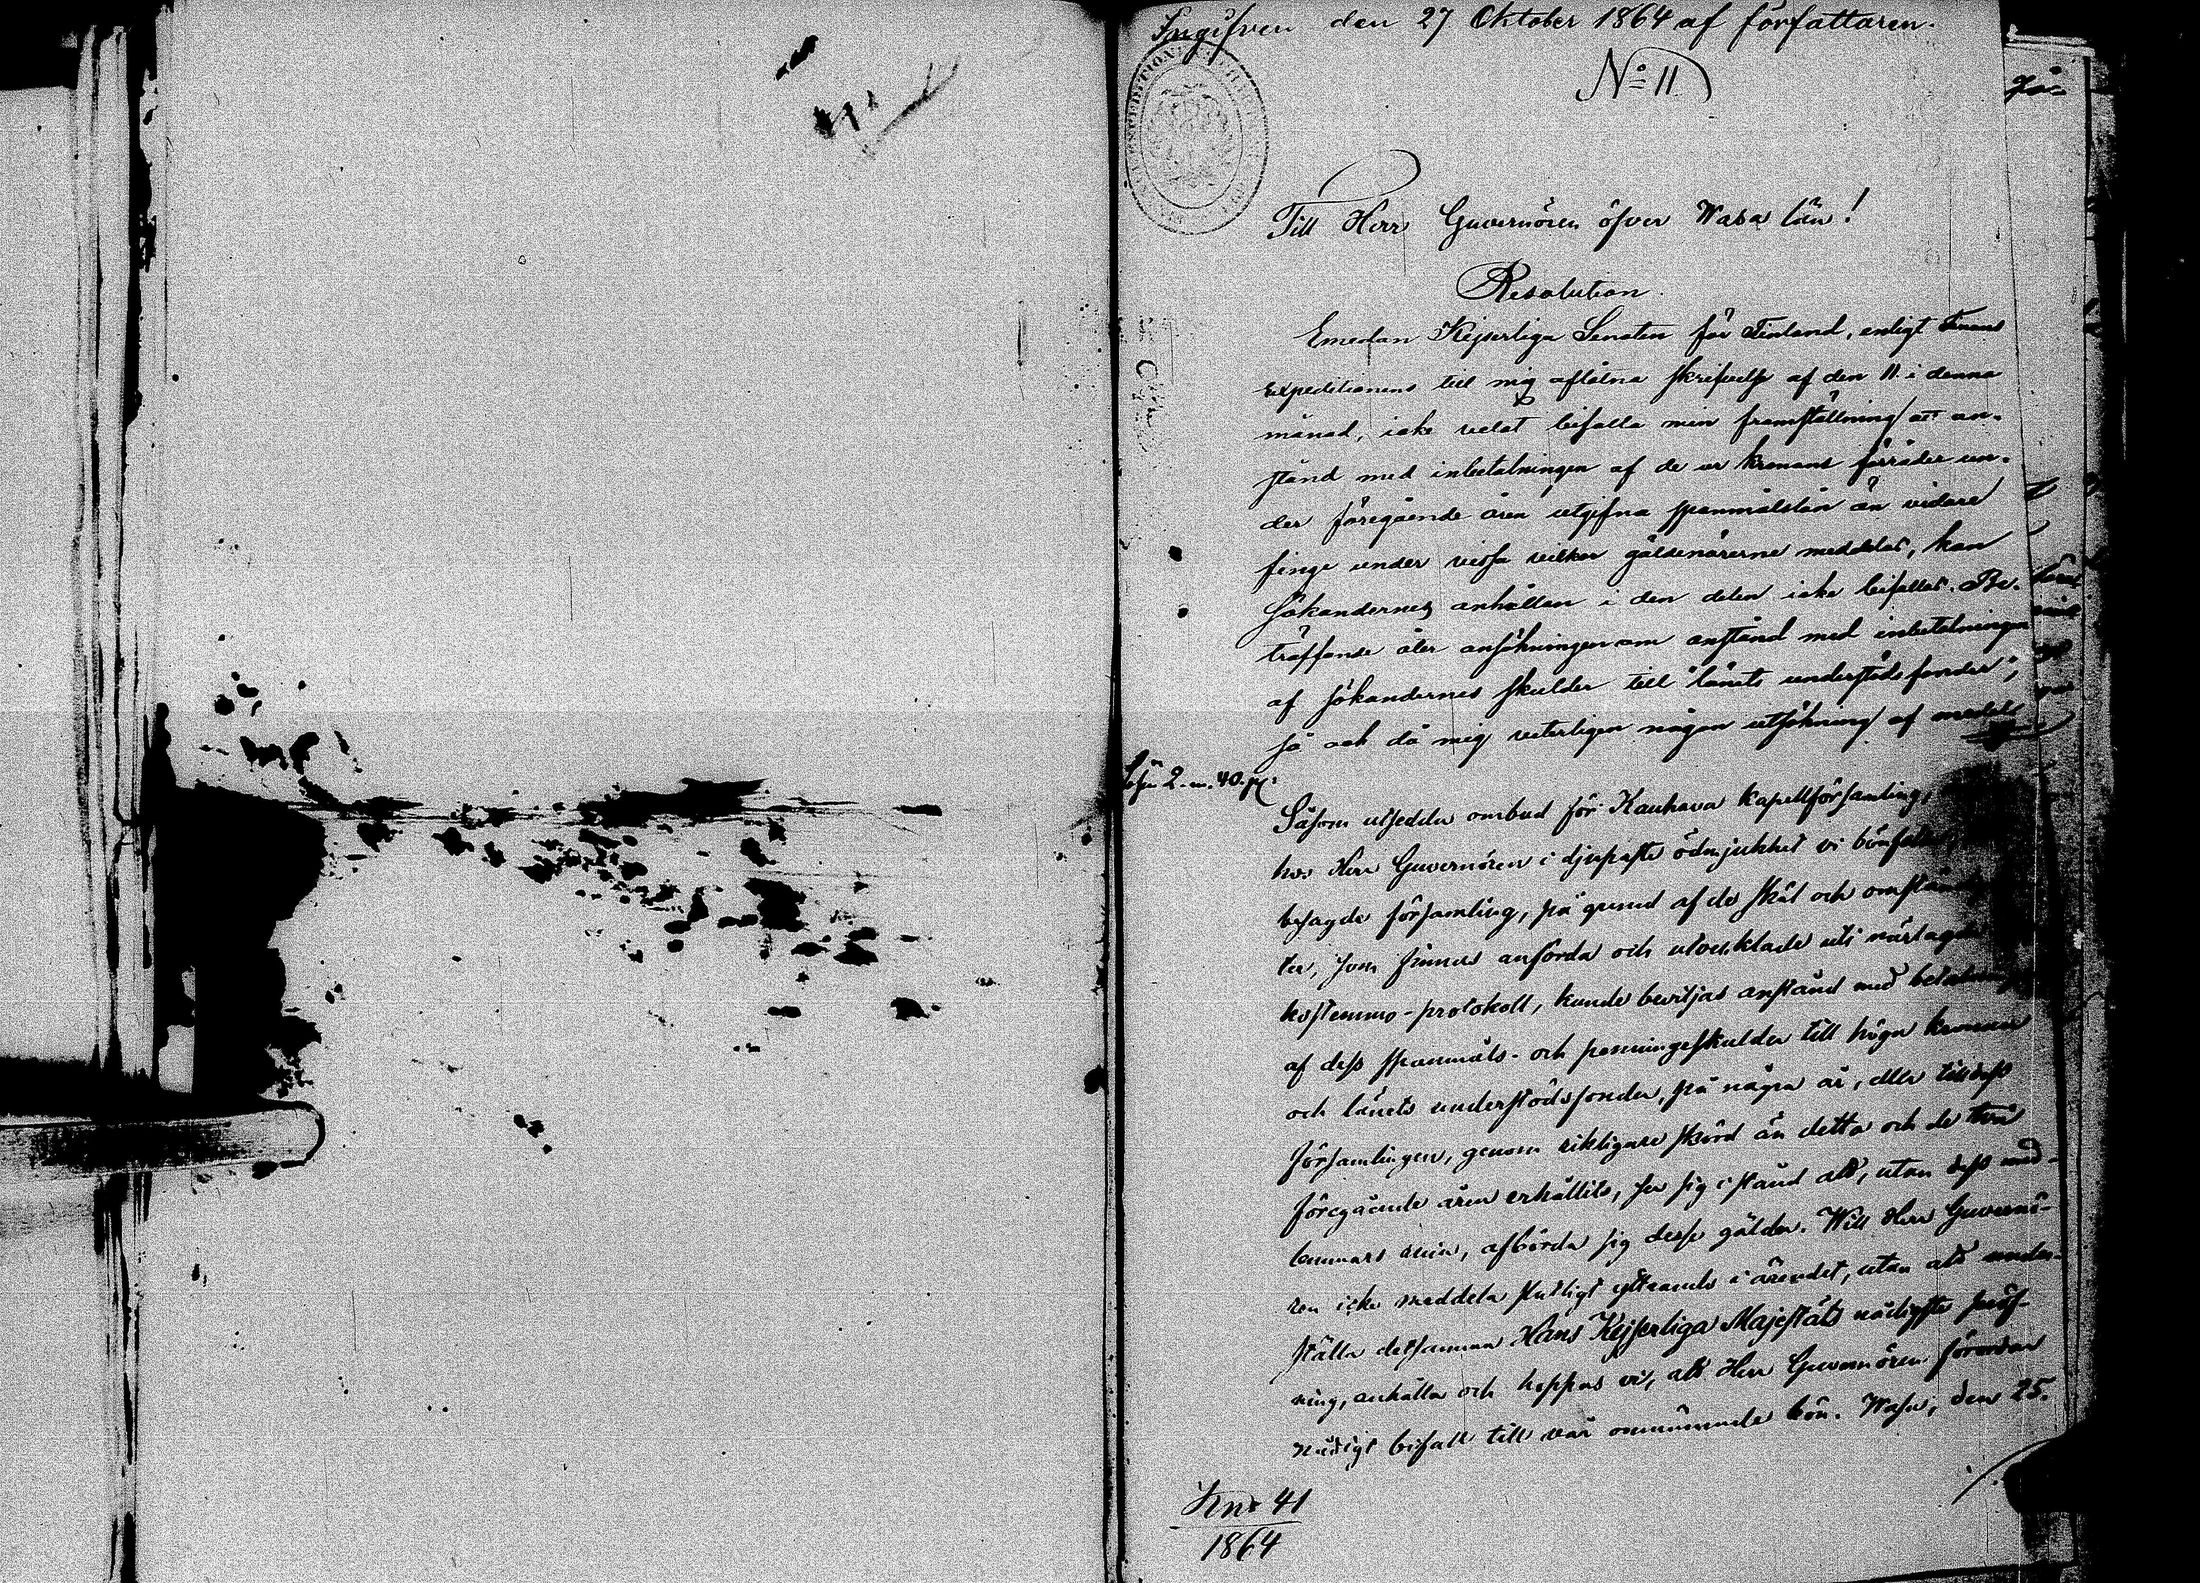 Ingifven den 27 Oktober 1864 af författaren.
No 11
Till Herr Guvernören öfver Wasa län!
Resolution.
Emedan Kejserliga Senaten för Finland, enligt Finans
expeditionens till mig aflåtna skrifvelse af den 11 i denna
månad, icke velat bifalla min framställning att an-
stånd med inbetalningen af de ur kronans förråder un-
der föregående åren utgifna spanmålslån än vidare
finge under vissa vilkor gäldenärerne meddelas, kan
sökandernes anhållan i den delen icke bifallas. Be-
träffande åter ansökningen om anstånd med inbetalningen
af sökandernes skulder till länets understödsfonder;
så och då mig veterligen någon utsökning af medel
Lösen 2 m. 40 p:
Såsom utsedda ombud för Kauhava kapellförsamling,
hos Herr Guvernören i djupaste ödmjukhet vi bönfalla,
besagde församling, på grund af de skäl och omständig
ter, som finnas anförda och utvecklade uti närlagde
kostemmo-protokoll, kunde beviljas anstånd med betalning
af dess spanmåls- och penningeskulder till höga kronan
och länets understödsfonder, på några år, eller till dess
församlingen, genom rikligare skörd än detta och de två
föregående åren erhållits, ser sig i stånd att, utan dess med-
lemmars ruin, afbörda sig desse gälder. Will Herr Guvernö-
ren icke meddela slutligt yttrande i ärendet, utan att under-
ställa detsamma Hans Kejserliga Majestäts nådigste pröf-
ning, anhålla och hoppas vi, att Herr Guvernören förordar
nådigt bifall till vår omnämnde bön. Wasa, den 25.
Kn: 41
1864